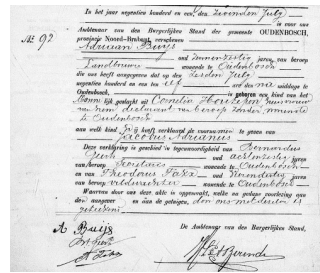 In het jaar negentien honderd en een, den zevenden July
is voor ons
Ambtenaar van den Burgerlijken Stand der gemeente OUDENBOSCH,
№ 92
provincie Noord-Brabant, verschenen
Adriaan Buijs
oud jaren, van beroep
Landbouwer wonende te Oudenbosch
die ons heeft aangegeven dat op den zesden July
negentien honderd en een ten elf ure des middags te
Oudenbosch, is geboren een kind van het
Mann lijk geslacht uit Cornelia
van beroep zonder, wonende
te Oudenbosch
aan welk kind hij heeft verklaard de voornamen te geven van
Jacobus Adrianus
Deze verklaring is geschied in tegenwoordigheid van Bernardus
oud jaren,
van beroep wonende te Oudenbosch
en van Theodorus oud jaren,
van beroep veldwachter wonende te Oudenbosch
Waarvan door ons deze akte is opgemaakt, welke na gedane voorlezing aan
den aangever en aan de getuigen, door ons met dezelve is
geteekend
De Ambtenaar van den Burgerlijken Stand,
A Buijs